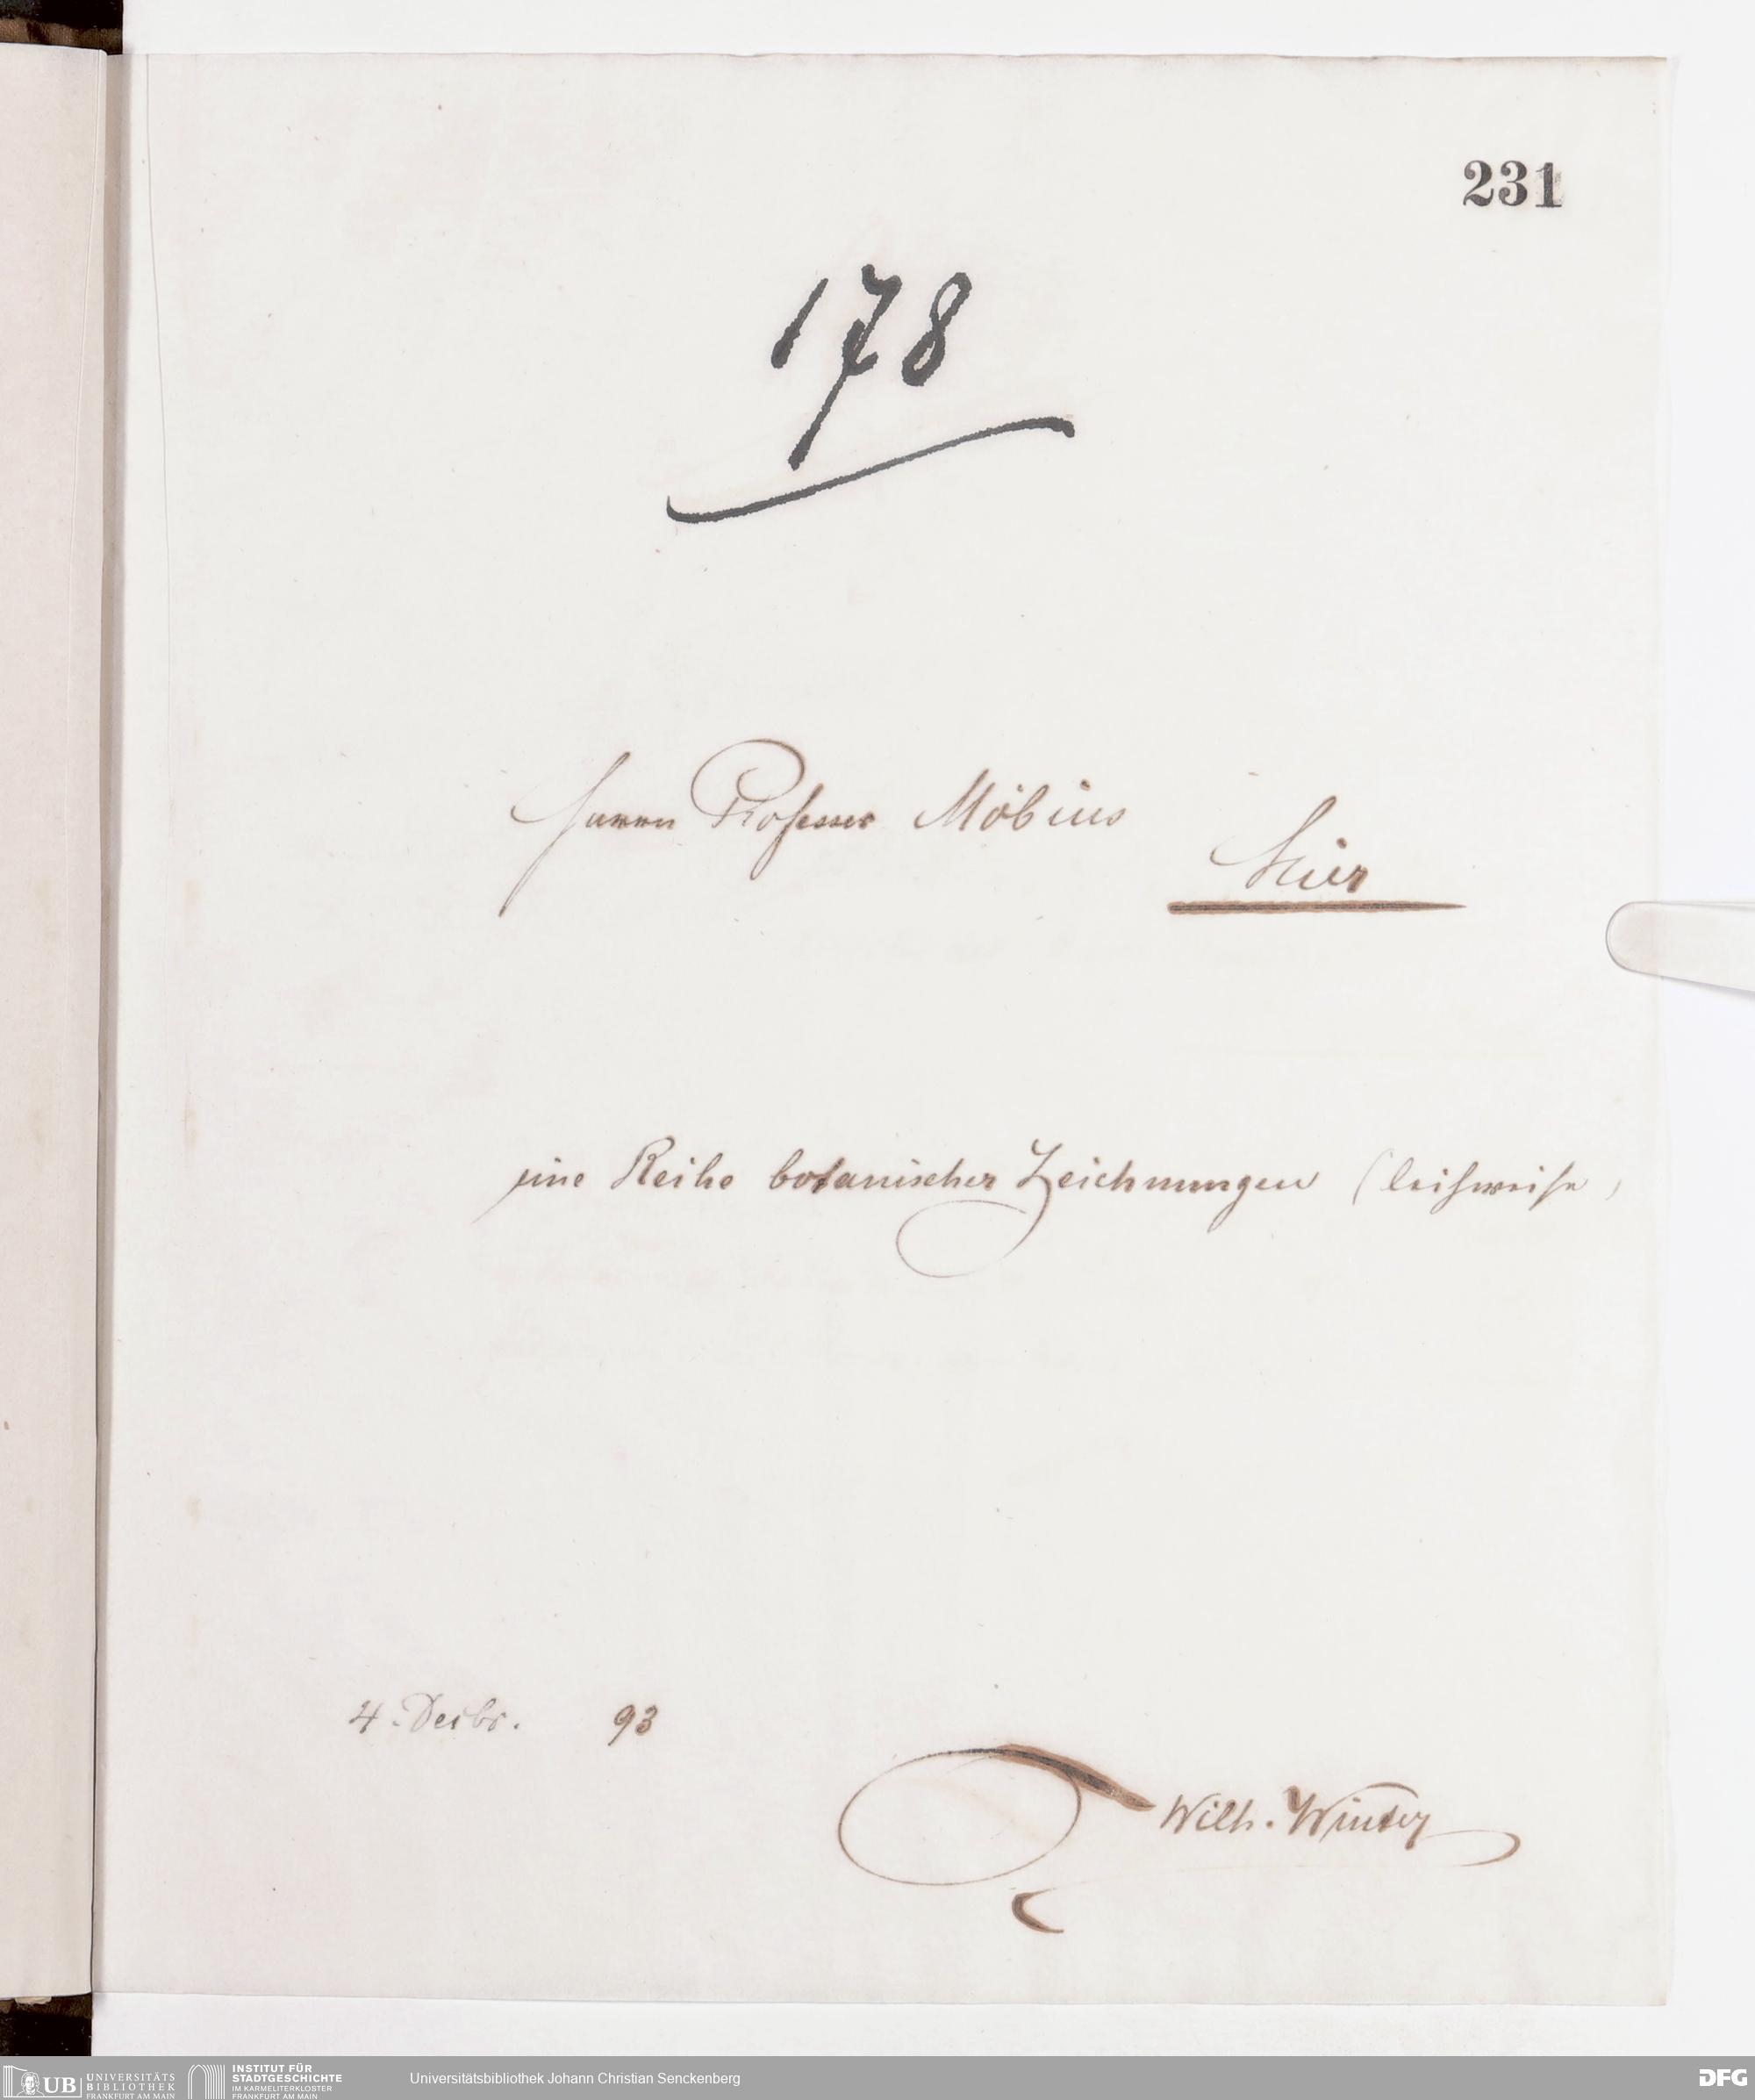 231
178
Herrn Professor Möbius
Hier
eine Reihe botanischer Zeichnungen (leihweise)
4. Dezbr. 93
Wilh. Winter
UB UNIVERSITÄTS BIBLIOTHEK FRANKFURT AM MAIN
INSTITUT FÜR STADTGESCHICHTE IM KARMELITERKLOSTER FRANKFURT AM MAIN
Universitätsbibliothek Johann Christian Senckenberg
DFG